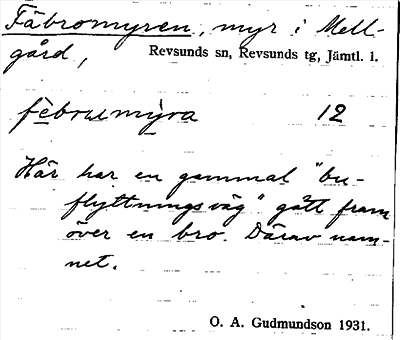 Fäbromyren, myr i Mell-
gård, Revsunds sn, Revsunds tg, Jämtl. l.
fèbrumỳra 12
Här har en gammal "bu-
flyttningsväg" gått fram
över en bro. Därav nam-
net.
O. A. Gudmundson 1931.